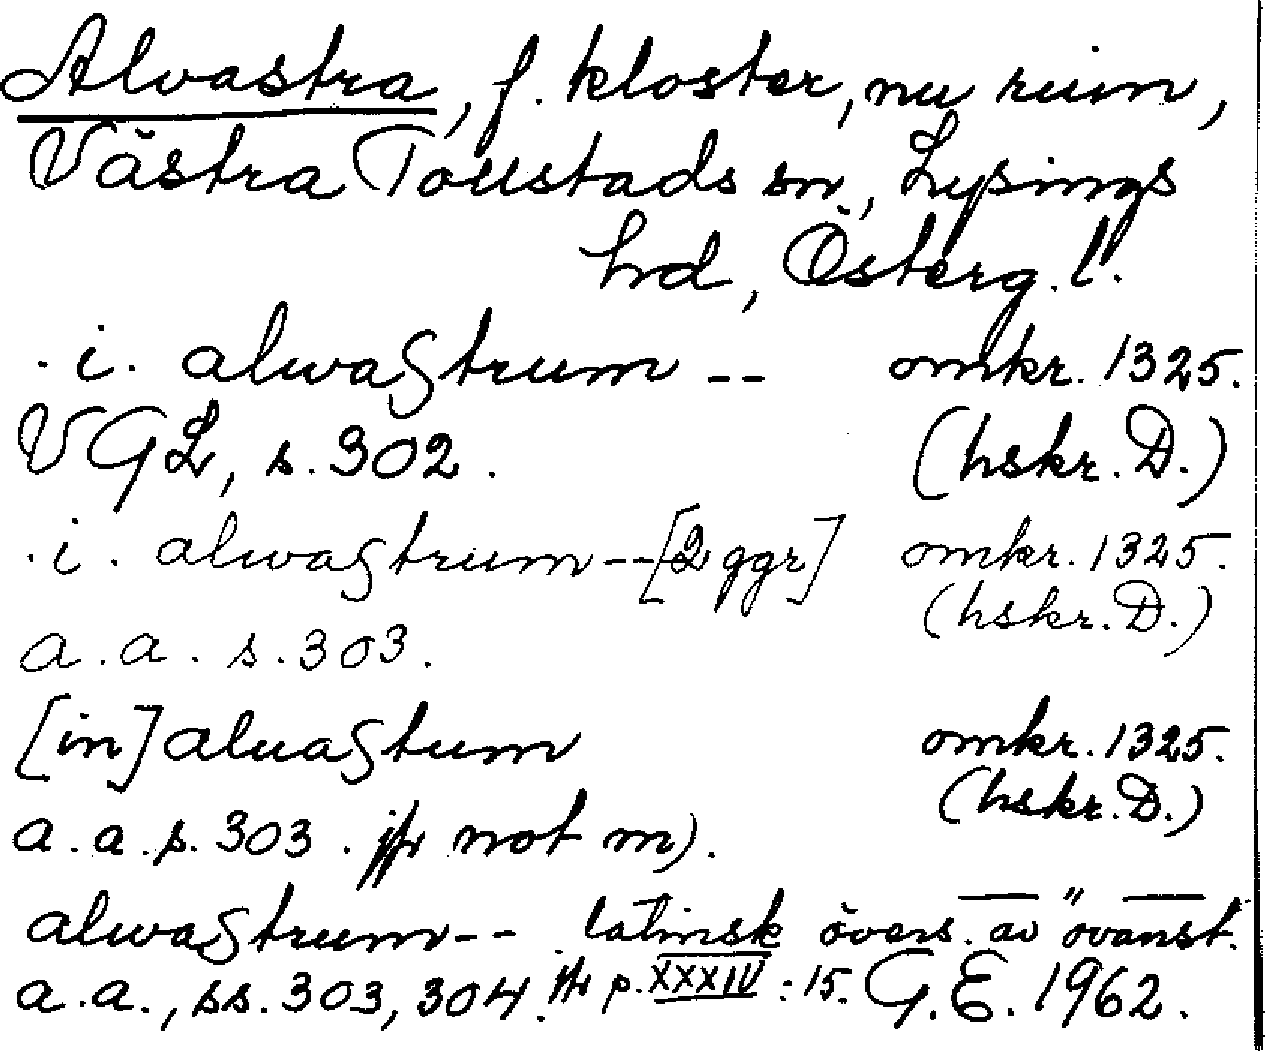 Alvastra, f. kloster, nu ruin,
Västra Tollstads sn, Lysings
hd, Österg.l.
.i. alwaſtrum -- omkr. 1325.
VGL, s. 302. (hskr. D.)
.i. alwaſtrum -- [2 ggr] omkr. 1325.
(hskr. D.)
a.a. s. 303.
[in] aluaſtum omkr. 1325.
(hskr. D.)
a.a. s. 303. jfr not m).
alwaſtrum -- latinsk övers. av ovanst.
a.a., ss. 303, 304. jfr p. XXXIV : 15. G.E. 1962.